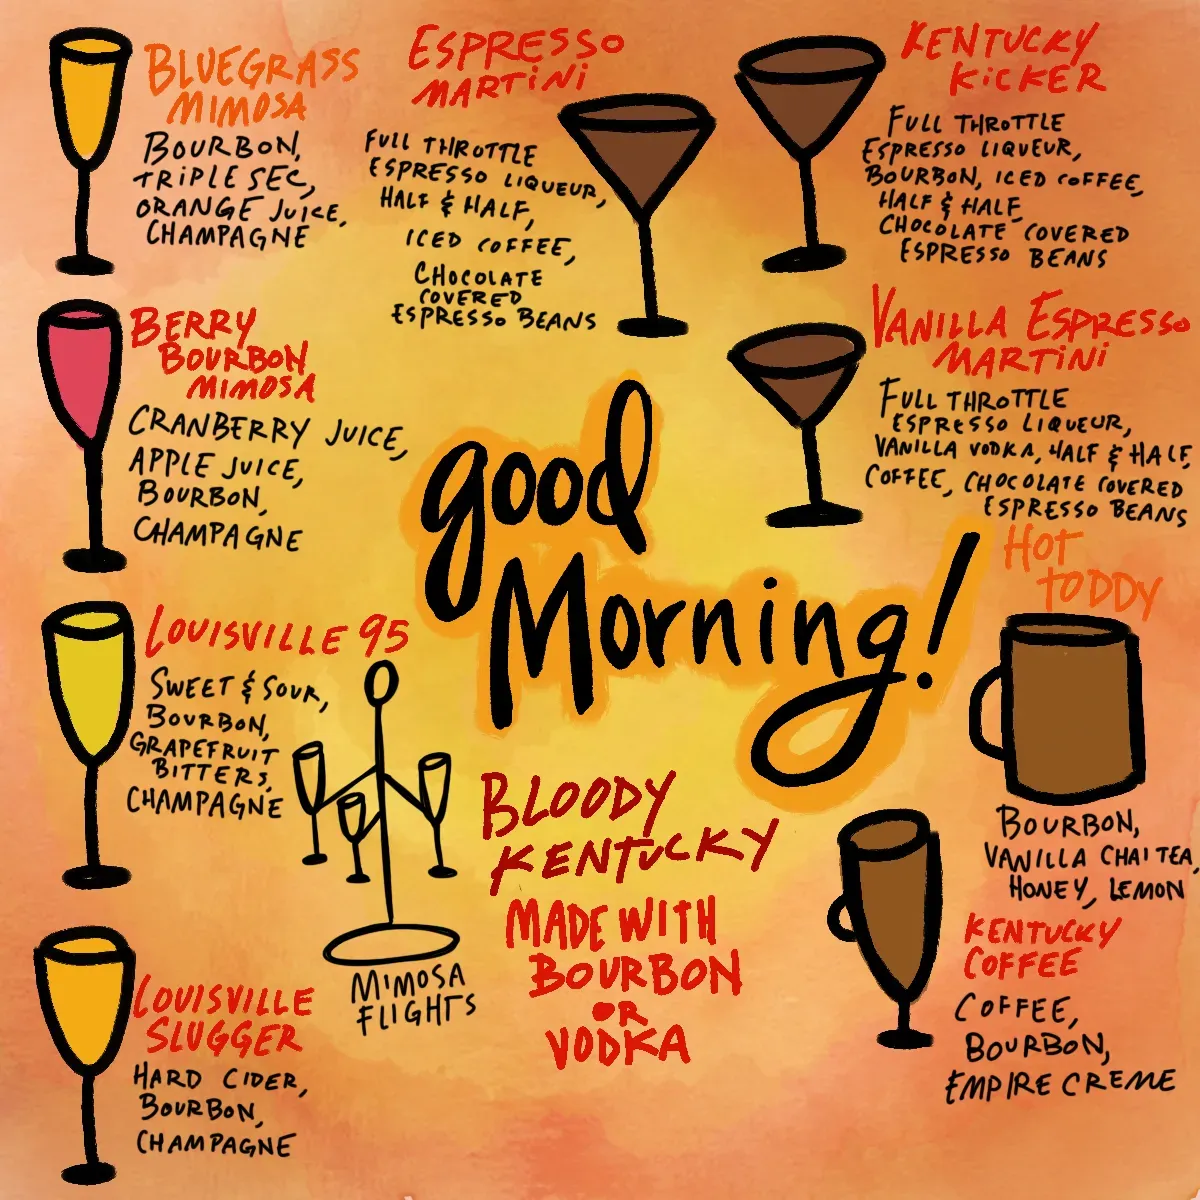 BLUEGRASS
MIMOSA
BOURBON,
TRIPLE SEC,
ORANGE JUICE,
CHAMPAGNE
ESPRESSO
MARTINI
FULL THROTTLE
ESPRESSO LIQUEUR,
HALF & HALF,
ICED COFFEE,
CHOCOLATE
COVERED
ESPRESSO BEANS
KENTUCKY
KICKER
FULL THROTTLE
ESPRESSO LIQUEUR,
BOURBON, ICED COFFEE,
HALF & HALF,
CHOCOLATE COVERED
ESPRESSO BEANS
BERRY
BOURBON
MIMOSA
CRANBERRY JUICE,
APPLE JUICE,
BOURBON,
CHAMPAGNE
VANILLA ESPRESSO
MARTINI
FULL THROTTLE
ESPRESSO LIQUEUR,
VANILLA VODKA, HALF & HALF,
COFFEE, CHOCOLATE COVERED
ESPRESSO BEANS
good
Morning!
LOUISVILLE 95
SWEET & SOUR,
BOURBON,
GRAPEFRUIT
BITTERS,
CHAMPAGNE
HOT
TODDY
BOURBON,
VANILLA CHAI TEA,
HONEY, LEMON
BLOODY
KENTUCKY
MADE WITH
BOURBON
OR
VODKA
MIMOSA
FLIGHTS
KENTUCKY
COFFEE
COFFEE,
BOURBON,
EMPIRE CREME
LOUISVILLE
SLUGGER
HARD CIDER,
BOURBON,
CHAMPAGNE